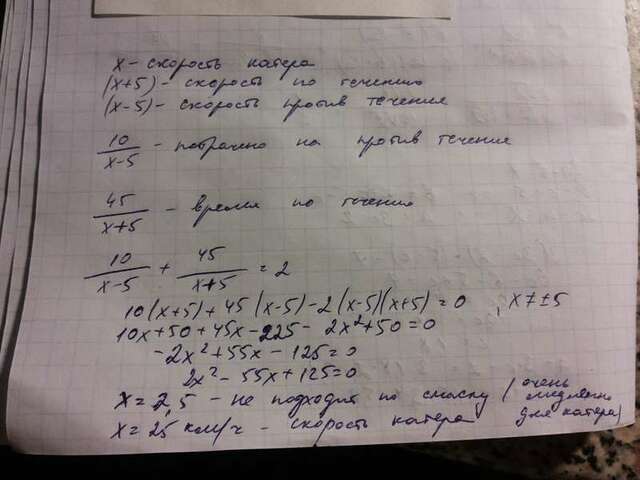 x - скорость катера
(x+5) - скорость по течению
(x-5) - скорость против течения
10/(x-5) - потрачено на против течение
45/(x+5) - время по течению
10/(x-5) + 45/(x+5) = 2
10(x+5) + 45(x-5) - 2(x-5)(x+5) = 0 , x ≠ ±5
10x + 50 + 45x - 225 - 2x² + 50 = 0
-2x² + 55x - 125 = 0
2x² - 55x + 125 = 0
x = 2,5 - не подходит по смыслу (очень медленно для катера)
x = 25 км/ч - скорость катера